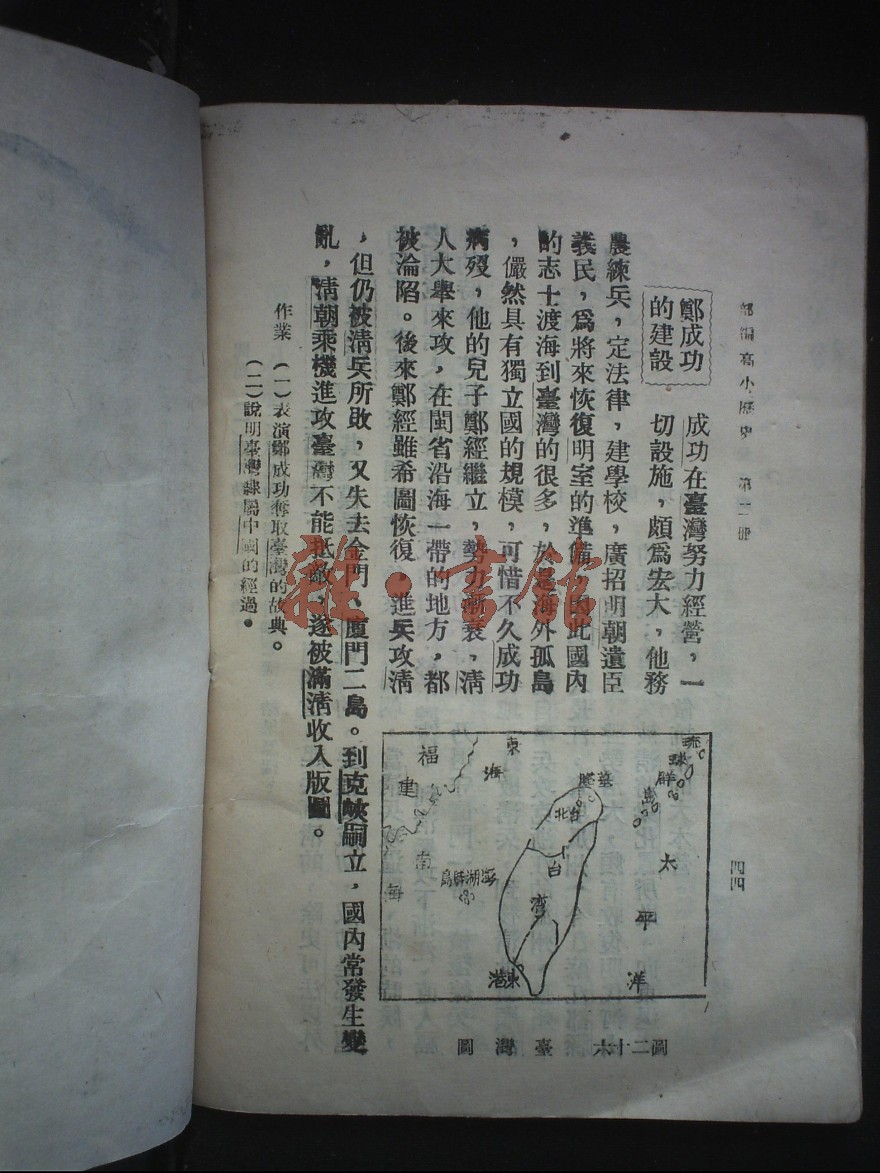 部編高小歷史 第二冊
四四
鄭成功
的建設
成功在臺灣努力經營，一
切設施，頗爲宏大，他務
農練兵，定法律，建學校，廣招明朝遺臣
義民，爲將來恢復明室的準備，因此國內
的志士渡海到臺灣的很多，於是海外孤島
，儼然具有獨立國的規模，可惜不久成功
病歿，他的兒子鄭經繼立，勢力漸衰，淸
人大舉來攻，在閩省沿海一帶的地方，都
被淪陷。後來鄭經雖希圖恢復，進兵攻淸
，但仍被淸兵所敗，又失去金門、廈門二島。到克塽嗣立，國內常發生變
亂，淸朝乘機進攻臺灣不能抵敵，遂被滿淸收入版圖。
作業 (一)表演鄭成功奪取臺灣的故典。
(二)說明臺灣隸屬中國的經過。
琉球群島
太平洋
東海
基隆
台北
台灣
福建
南海
澎湖群島
東港
圖二十六 臺灣圖
雜·書館